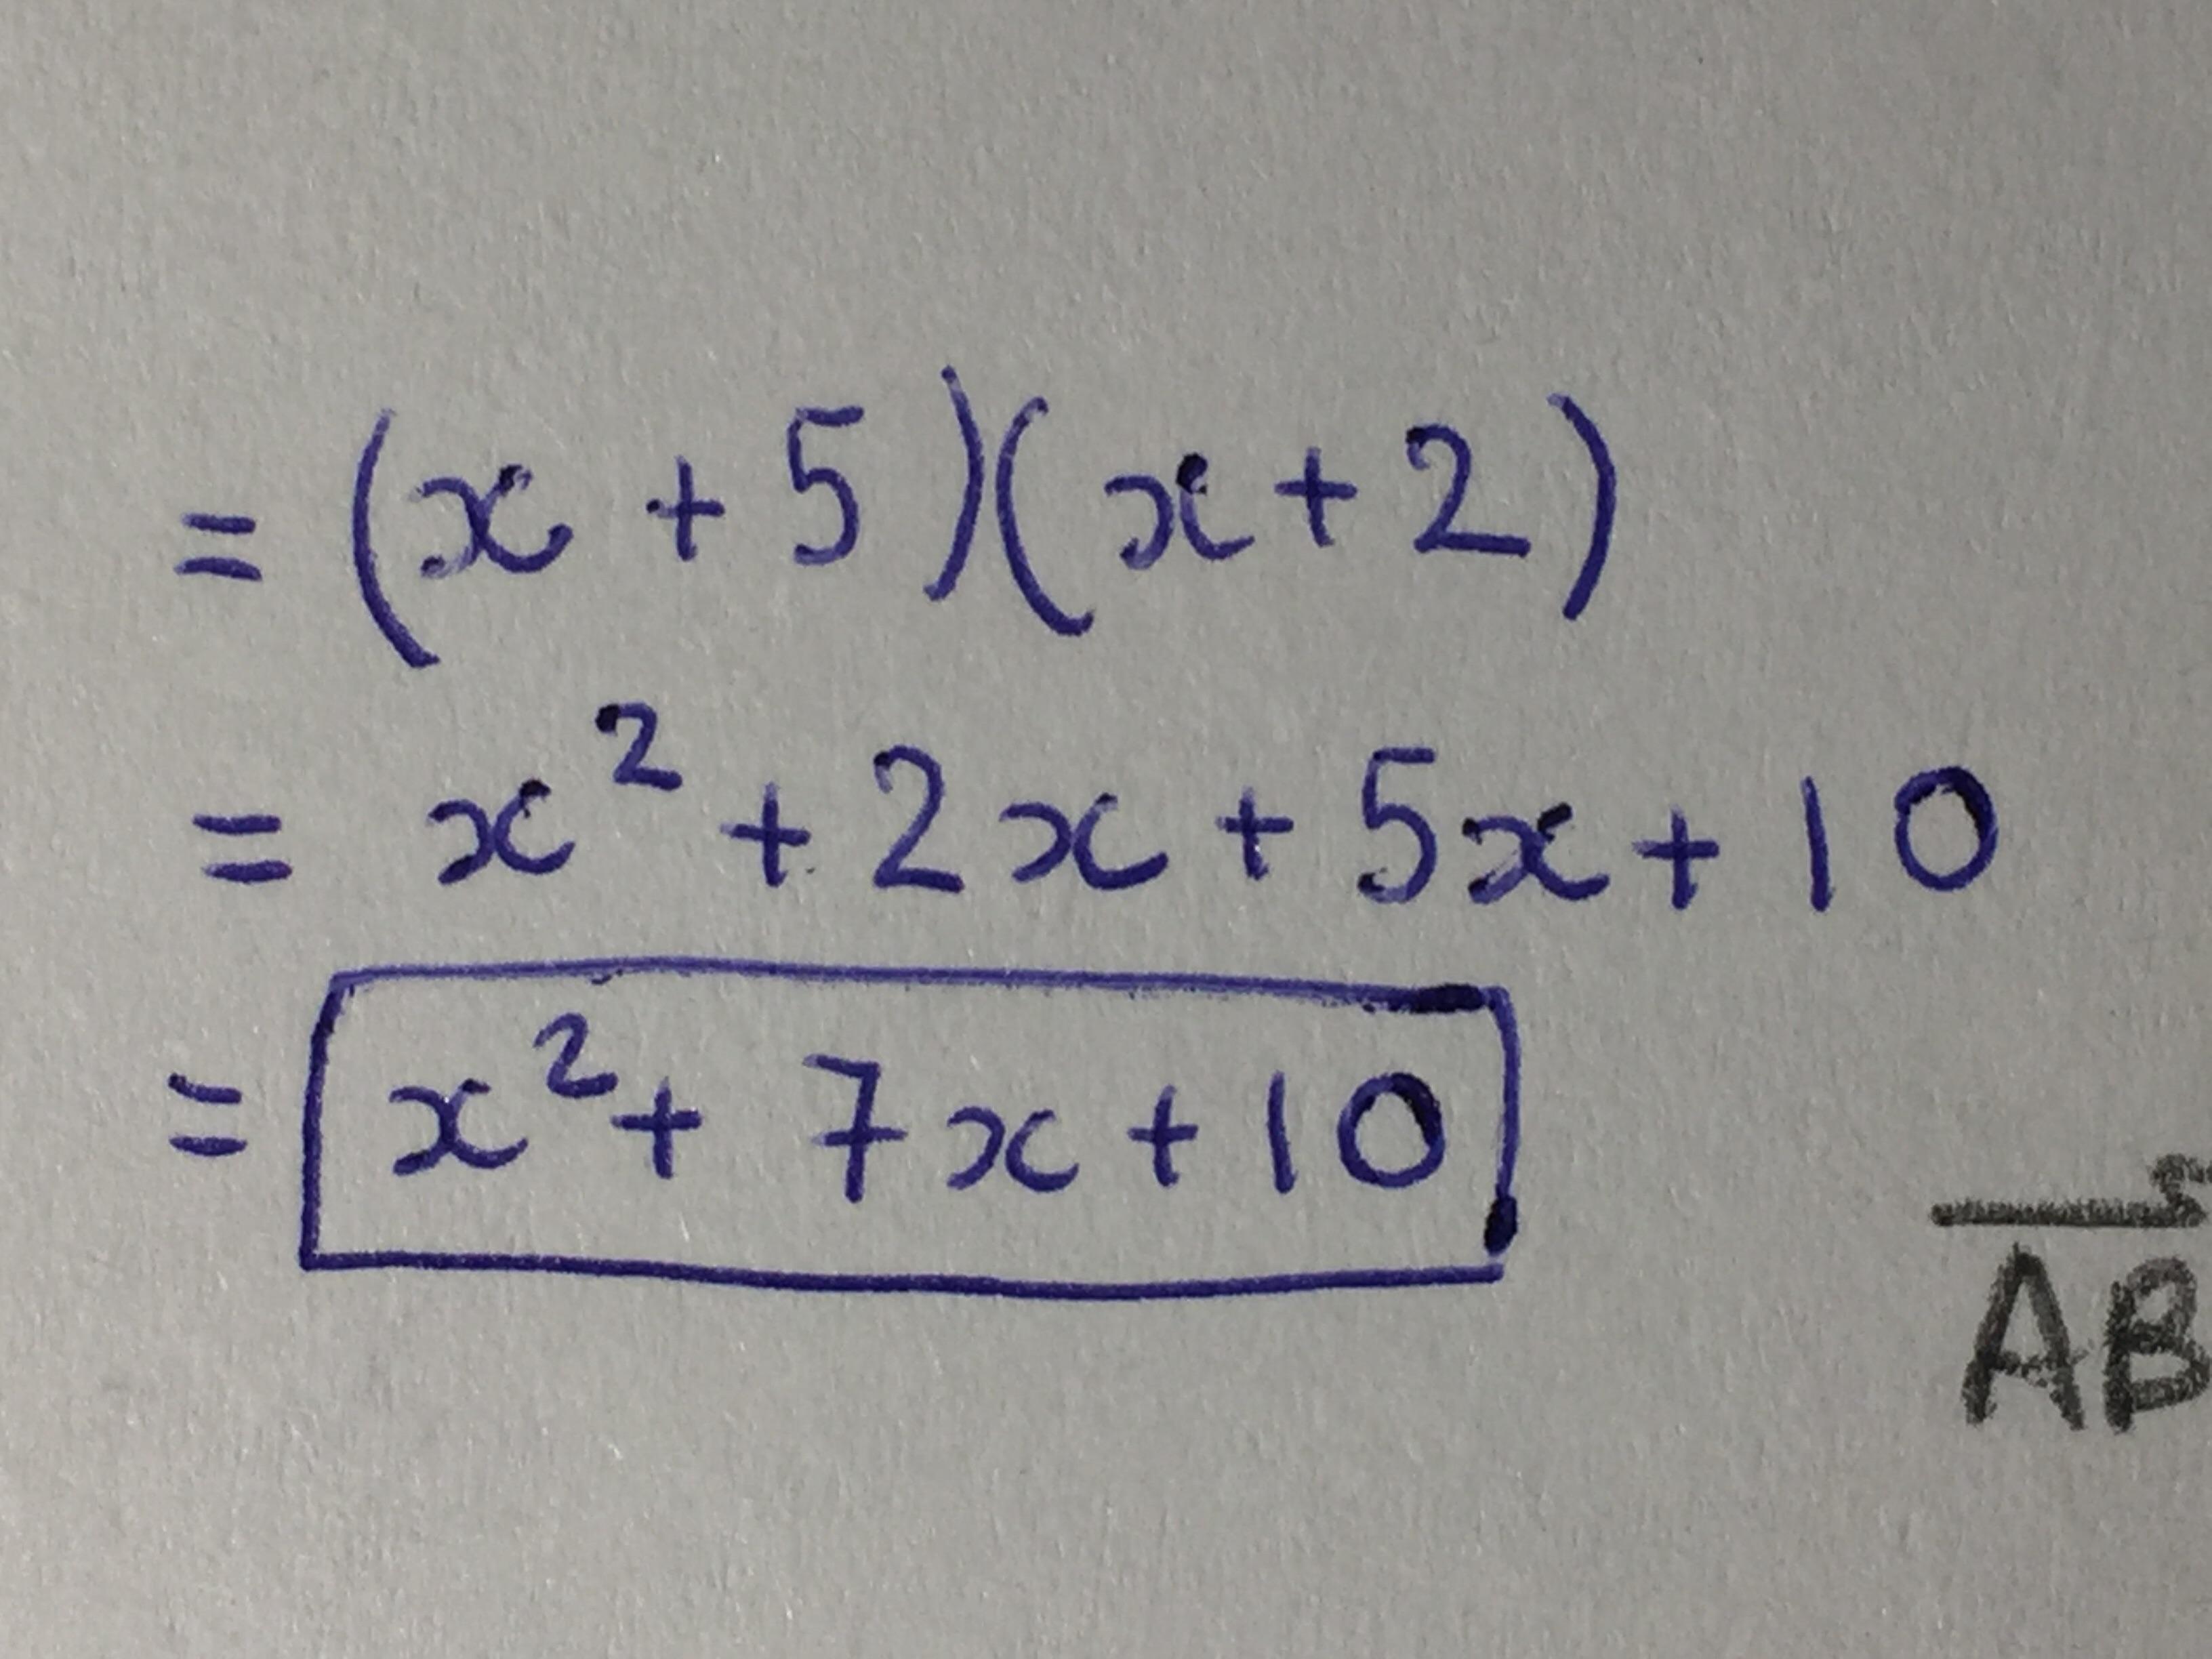 = (x + 5)(x + 2)
= x² + 2x + 5x + 10
= x² + 7x + 10
AB